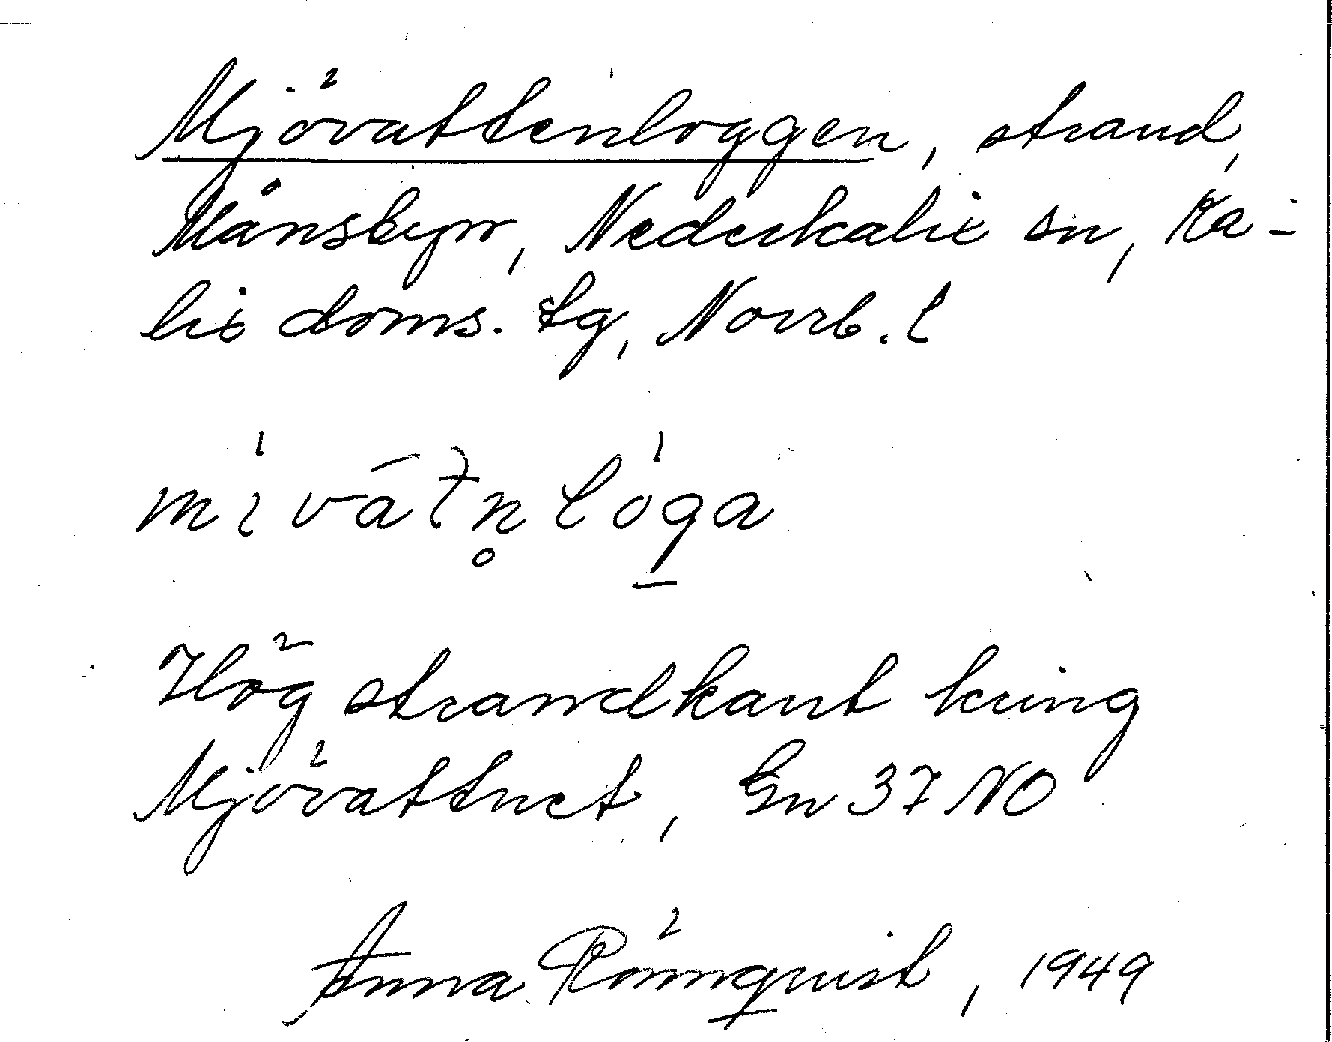 Mjövattenloggen, strand,
Månsbyn, Nederkalix sn, Ka-
lix doms. tg, Norrb. l
Hög strandkant kring
Mjövattnet, Gn 37 NO
Anna Rönnquist, 1949